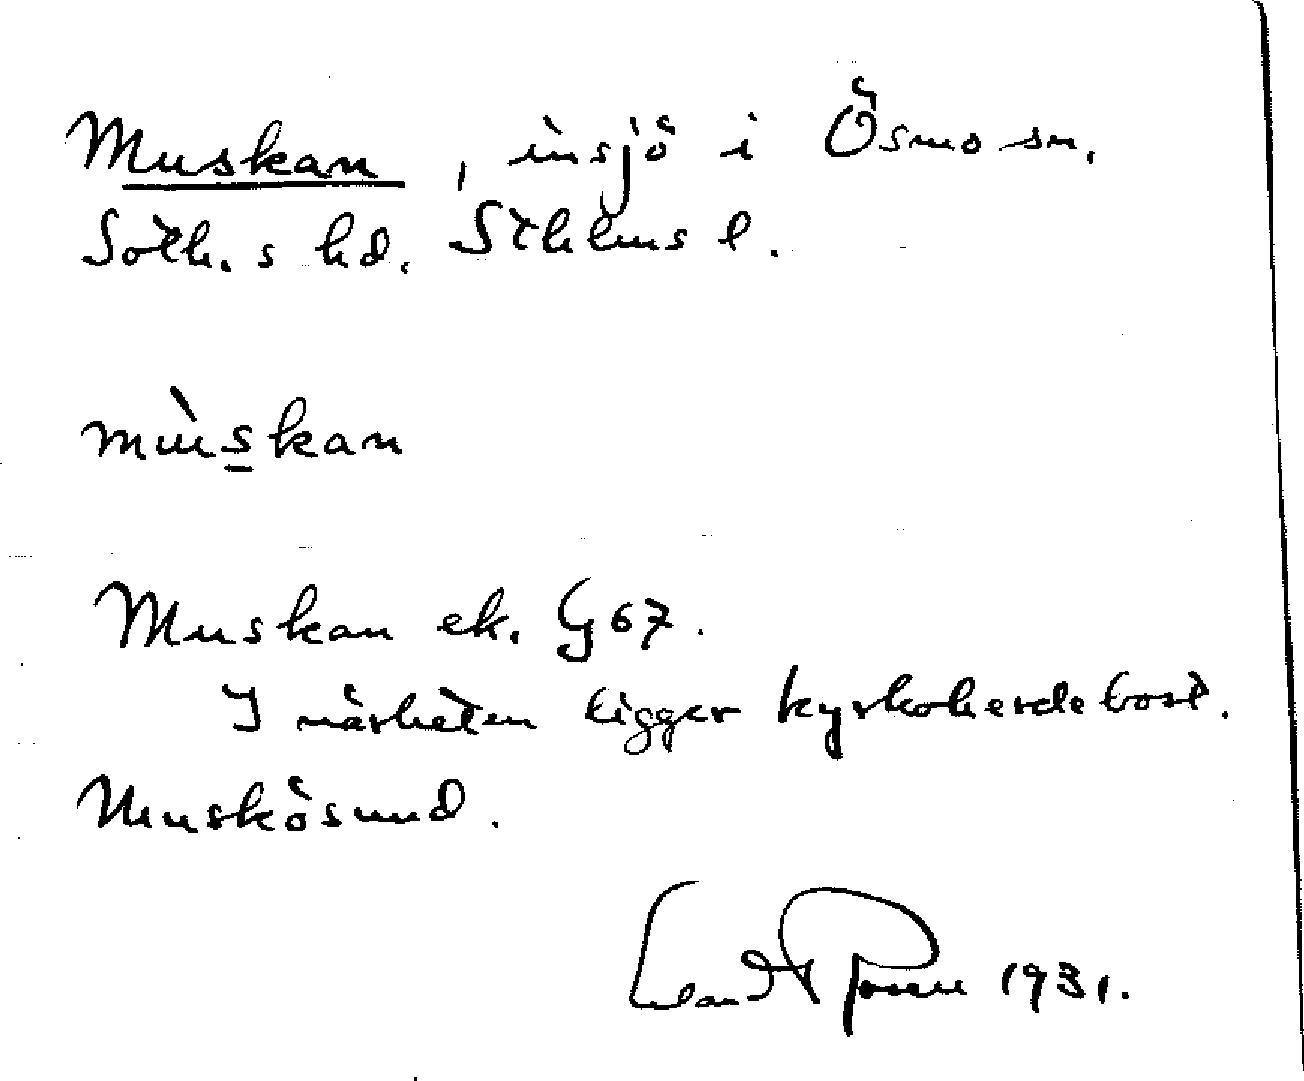 Muskan, insjö i Ösmo sn.
Soth.s hd. Sthlms l.
mùskan
Muskan ek. G 67.
I närheten ligger kyrkoherdebost.
Muskösund.
1931.